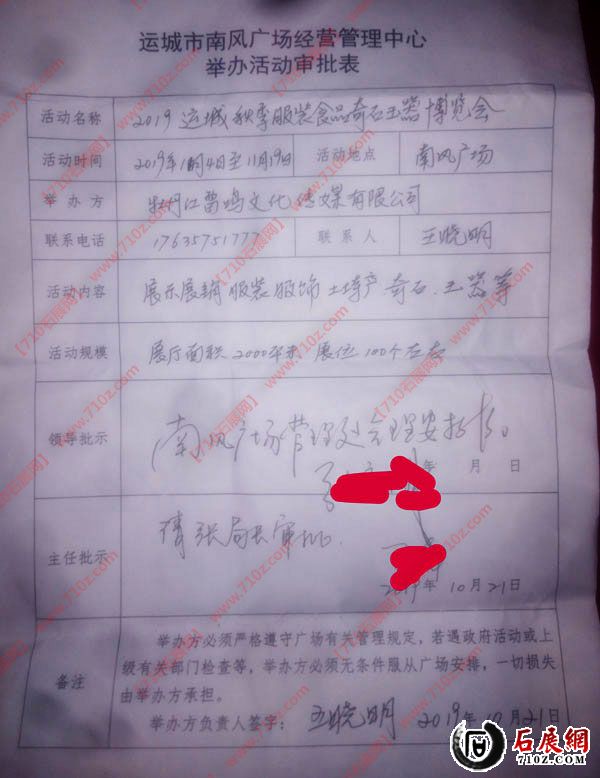 运城市南风广场经营管理中心
举办活动审批表
活动名称 2019运城秋季服装食品奇石玉器博览会
活动时间 2019年11月4日至11月19日 活动地点 南风广场
举办方 牡丹江雷鸣文化传媒有限公司
联系电话 17635751777 联系人 王晓明
活动内容 展示展销服装服饰土特产奇石、玉器等
活动规模 展厅面积2000平米 展位100个左右
领导批示 南风广场管理处合理安排。
年 月 日
主任批示 请张局长审批.
2019年10月21日
举办方必须严格遵守广场有关管理规定，若遇政府活动或上
级有关部门检查等，举办方必须无条件服从广场安排，一切损失
备注 由举办方承担。
举办方负责人签字： 王晓明 2019年10月21日
【710石展网】www.710z.com
石展網
710Z.COM